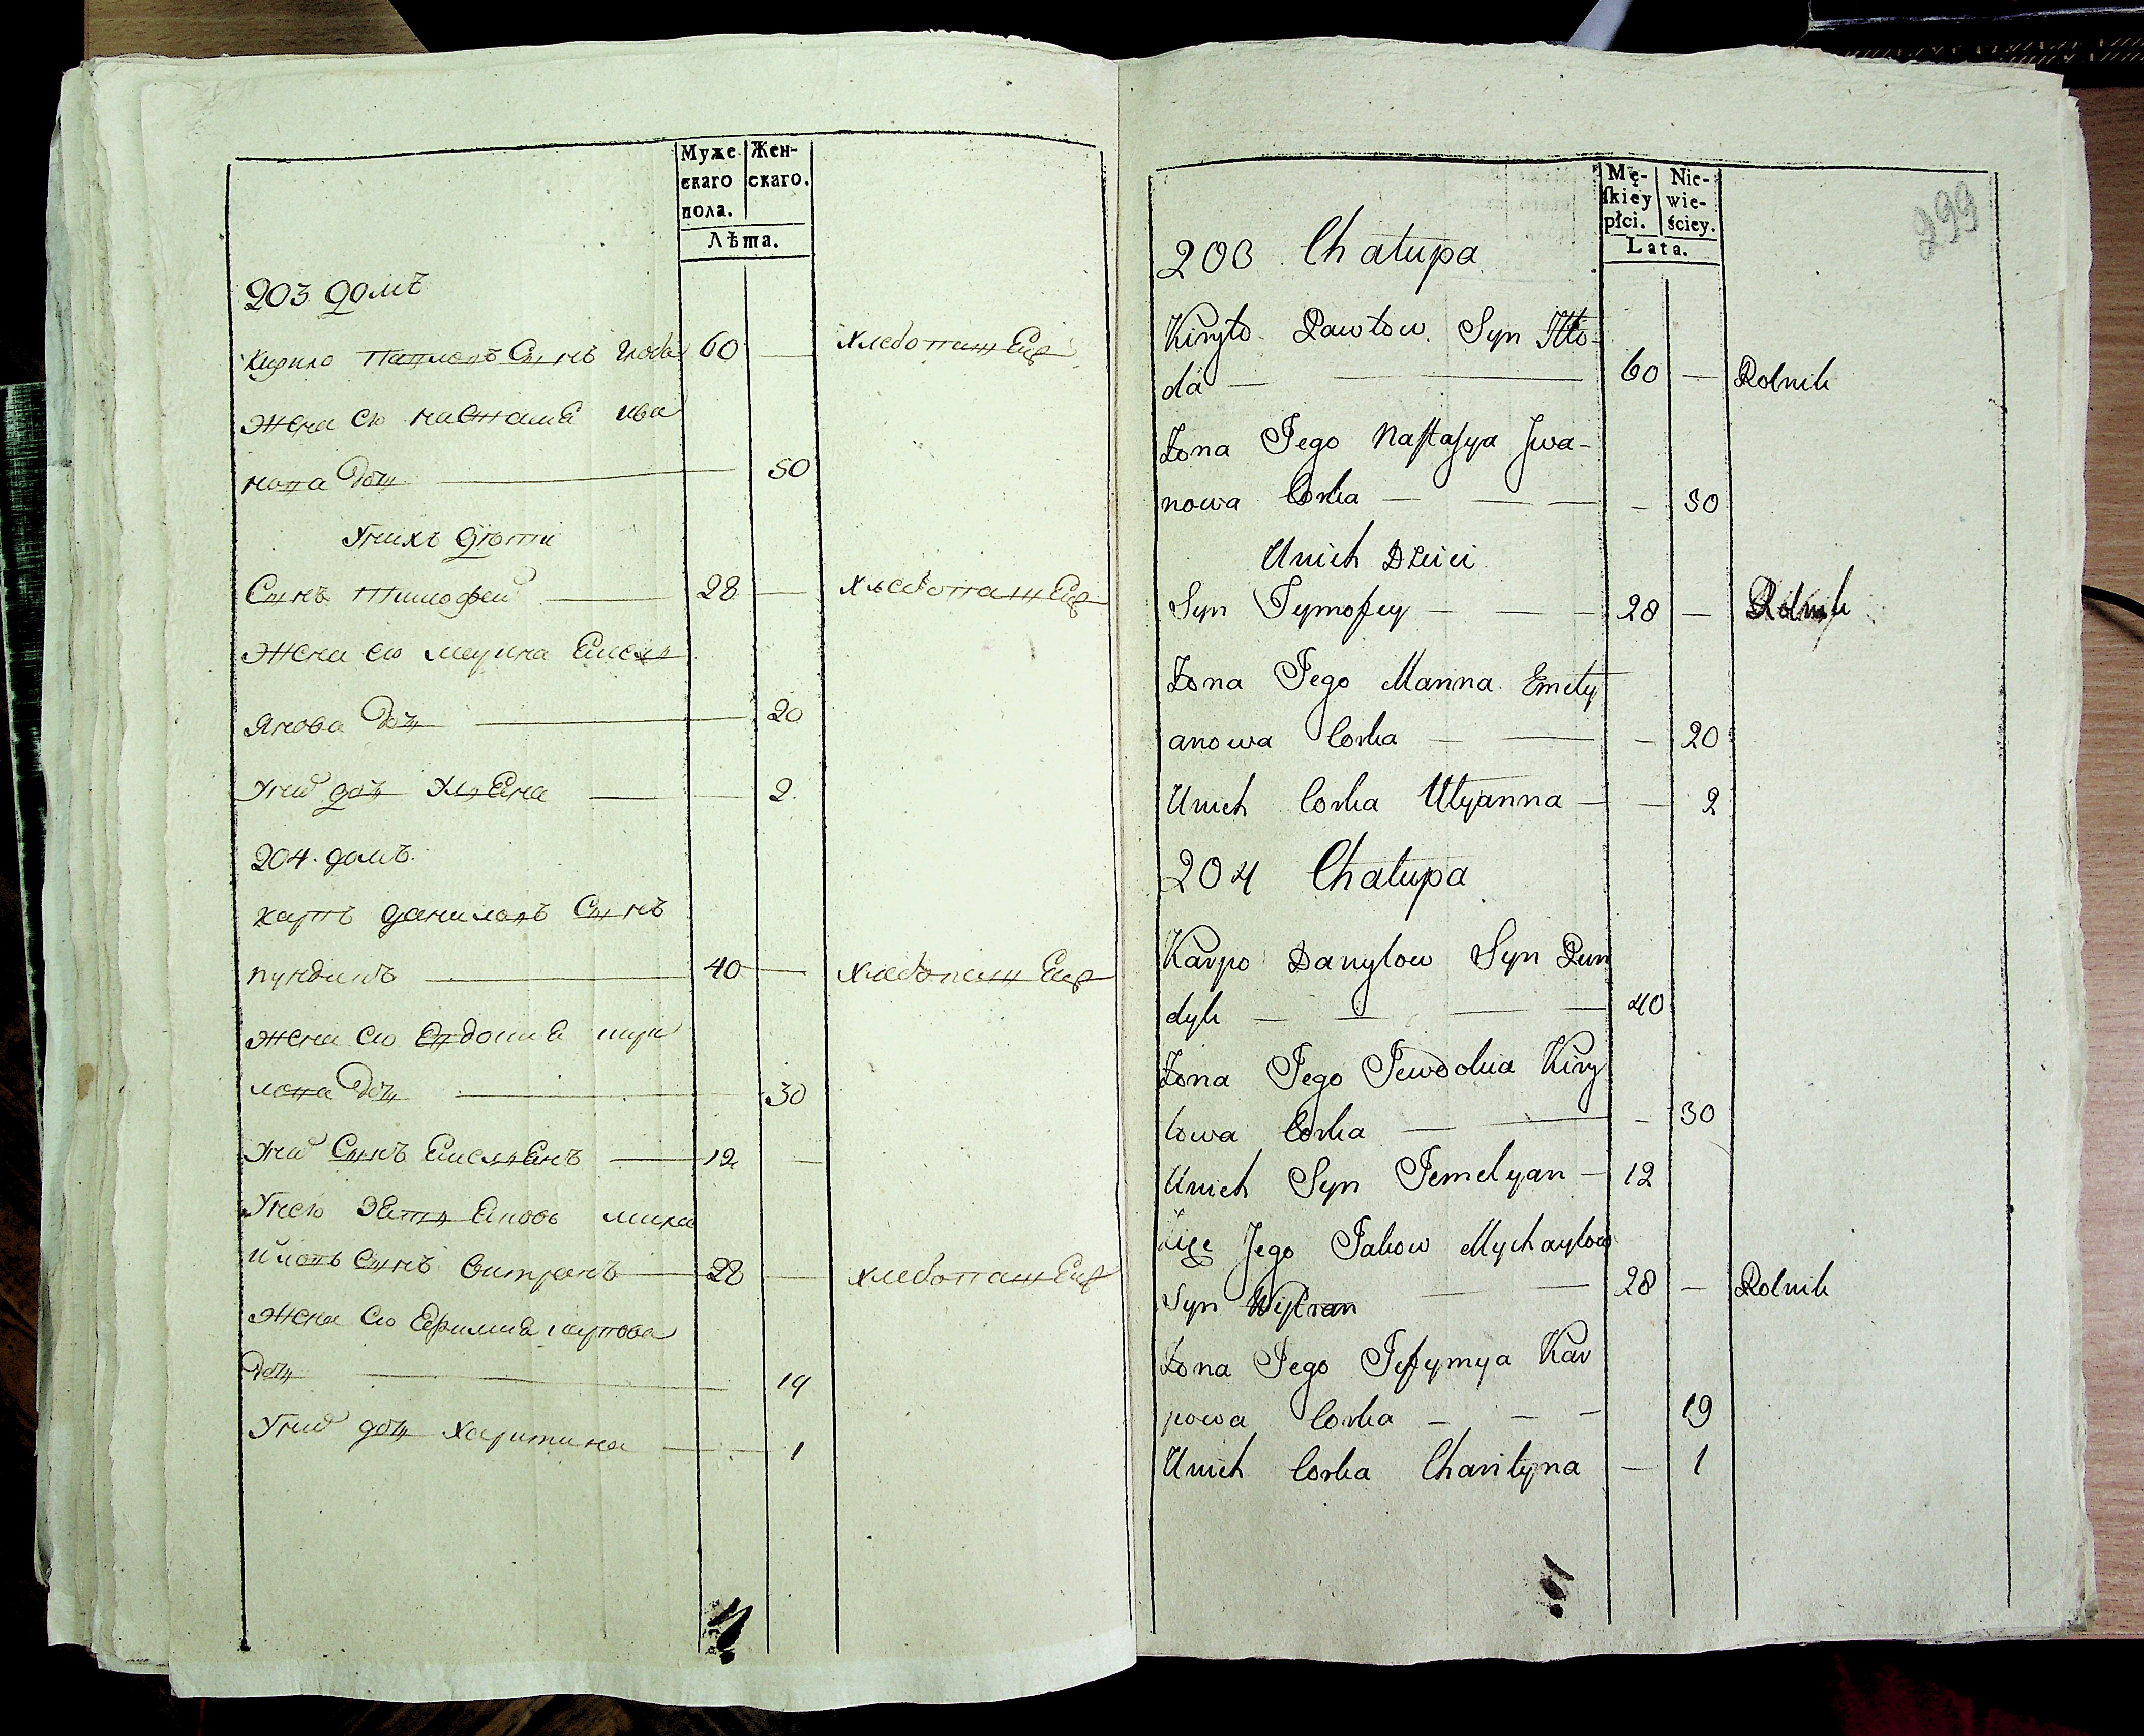 Муже
скаго
пола.
Жен-
скаго.
Лѣта.
203 домъ
Кирило Павловъ Сынъ 60 — хлебопашец
Жена ево настасиа ива
нова доч — 50
У них дѣти
Сынъ тимофей — 28 — хлебопашец
Жена ево марина Емел
янова доч — 20
У них доч Улиена — 2
204. домъ.
карпъ даниловъ Сынъ
пундикъ — 40 — хлебопашец
жена ево Евдокиа кири
лова доч — 30
У них Сынъ Емелиенъ — 12 —
У нево зять Яковъ миха
йловъ Сынъ — 28 — хлебопашец
Жена ево Ефимиа карпова
доч — 19
У них доч харитина — 1
Mę-
skiey
płci.
Nie-
wie-
ściey.
Lata.
299
203 Chałupa
Kiryło Pawłow Syn
da — 60 — Rolnik
Żona Jego Nastasya Jwa-
nowa Corka — — — 50
Unich Dzieci
Syn Tymofey — — 28 — Rolnik
Żona Jego Marina Emely
anowa Corka — — — 20
Unich Corka Ulyanna — — 2
204 Chałupa
Karpo Danyłow Syn Pun
dyk — — — — 40
Żona Jego Jewdokia Kiry
łowa Corka — — — 30
Unich Syn Jemelyan — 12
Jego Jakow Mychayłow
Syn — 28 — Rolnik
Żona Jego Jefymya Kar
powa Corka — — — 19
Unich Corka Charityna — 1